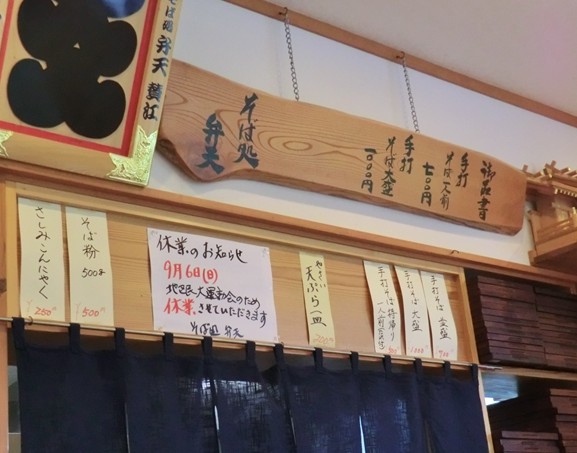 そば処
弁天
御品書
手打
そば一人前
七〇〇円
手打
そば大盛
一〇〇〇円
そば処
弁天
さしみこんにゃく
¥250
そば粉
500g
¥500
休業のお知らせ
9月6日(日)
地区民大運動会のため
休業させていただきます
そば処 弁天
やさい
天ぷら一皿
手打そば持帰り
手打そば 大盛
1000
手打そば 並盛
700